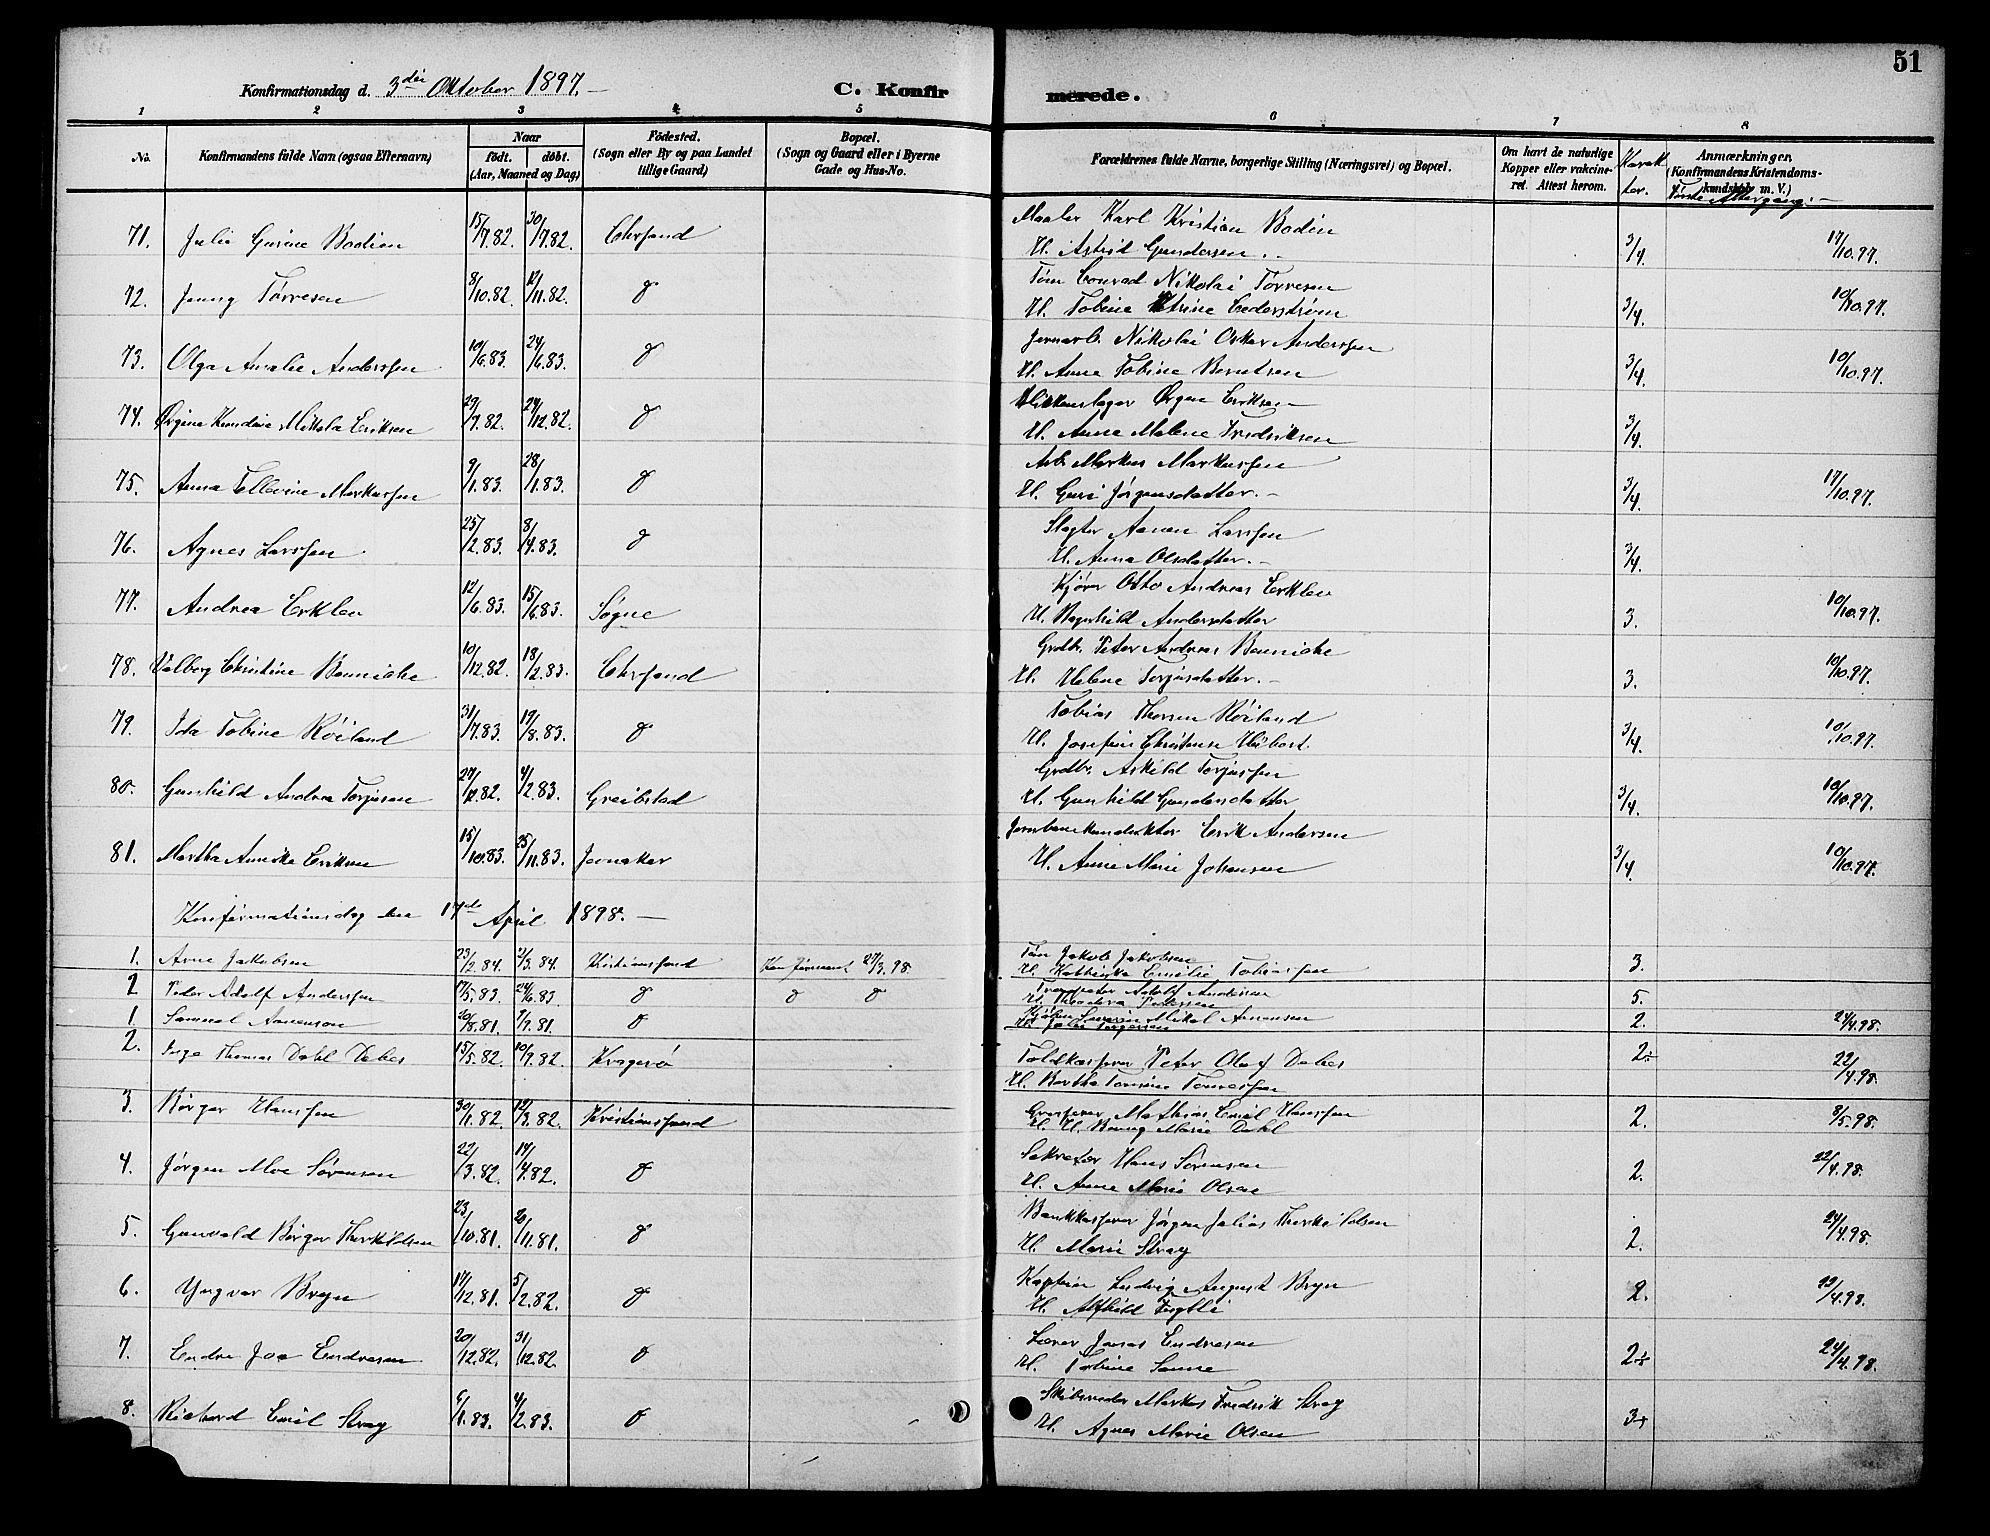 51
Konfirmationsdag d. 3die Oktober 1897.
C. Konfirmerede.
1 2 3 4 5 6 7 8
No. Konfirmandens fulde Navn (ogsaa Efternavn) Naar født. døbt. (Aar, Maaned og Dag) Fødested. (Sogn eller By og paa Landet tillige Gaard) Bopæl. (Sogn og Gaard eller i Byerne Gade og Hus-No. Forældrenes fulde Navne, borgerlige Stilling (Næringsvei) og Bopæl. Om havt de naturlige Kopper eller vakcineret. Attest herom. Karakter. Anmærkninger. (Konfirmandens Kristendomskundskab m. V.) Første Altergang.
71. Julie Gurine Bodien 15/7.82. 30/7.82. Chrsand Maaler Karl Kristian Bodin
H. Astrid Gundersen 3/4. 17/10.97.
72. Jenny Tørresen 8/10.82. 12/11.82. d Tøm Conrad Nikolai Tørresen
H. Tobine Cederstrøm 3/4. 10/10.97.
73. Olga Amalie Anderssen 10/6.83 24/6.83. d Jernarb. Nikolai Oskar Anderssen
H. Anna Tobine Berntsen 3/4. 10/10.97.
74. Ørgine Mikola Eriksen 29/7.82. 24/12.82. d Blikkenslager Ørgen Eriksen
H. Anna Malene Fredriksen 3/4.
75. Anna Tellevine Markussen 9/1.83. 28/1.83. d Arb. Markus Markussen
H. Guri Jørgensdatter. 3/4. 17/10.97.
76. Agnes Larssen 25/2.83. 8/4.83. d Slagter Aanen Larssen
H. Anna Olsdatter. 3/4.
77. Andrea Erklev 12/6.83. 15/6.83. Søgne Kjører Otto Andreas Erklev
H. Ragnhild Andersdatter 3. 10/10.97.
78. Valborg Christine Benniche 10/12.82. 18/2.83. Chrsand Grdbr. Peter Andreas Benniche
H. Helene Torjusdatter. 3. 10/10.97.
79. Ida Tobine Røiland 31/7.83. 19/8.83. d Tobias Røiland
H. Josefine Christense 3/4. 10/10.97.
80. Gunhild Andrea Torjusen 27/12.82. 4/2.83. Greibstad Grdbr. Askild Torjussen
H. Gunhild Gundersdatter 3/4. 10/10.97.
81. Martha Annike Eriksen 15/10.83. 25/11.83. Jevnaker Jernbanekonduktør Erik Andersen
H. Anne Marie Johansen 3/4. 10/10.97.
Konfirmationsdag den 17de April 1898.
1. Arne Jakobsen 23/2.84. 2/3.84. Kristianssand Konfirmeret 27/3.98 Tøm Jakob Jakobsen
H. Emilie Tobiassen 3.
2 Peder Adolf Anderssen 17/5.83. 24/6.83 d d d Adolf Andersen
H. Theodora Pederssen 5.
1 Samuel Aanensen 20/8.81. 7/9.81. d Mikal Aanensen
H. 2. 24/4.98.
2. Inge Thomas Dahl Debes 15/5.82. 10/9.82. Kragerø Toldkasserer Peter Olaf Debes
H. Bertha Tomine Tønnessen 2÷ 22/4.98.
3. Børger Hanssen 30/1.82. 12/3.82. Kristianssand Grosserer Mathias Emil Hanssen
H. H. Marie Dahl 2. 8/5.98.
4. Jørgen Moe Sørensen 22/3.82. 14/4.82. d Sekretær Hans Sørensen
H. Anne Marie Olsen 2. 22/4.98.
5. Gunvald Børger Therkildsen 23/10.81. 20/11.81. d Bankkasserer Jørgen Julius Therkildsen
H. Marie Stray 2. 24/4.98.
6. Yngvar Bryn 17/12.81. 5/2.82. d Kaptein Ludvig August Bryn
H. Alfhild 2. 22/4.98.
7. Endre Joe Endresen 20/12.82. 31/12.82. d Lærer Jonas Endresen
H. Tobine Sanne 2÷ 24/4.98.
8. Richard Emil Stray 6/1.83. 4/2.83. d Skibsreder Markus Fredrik Stray
H. Agnes Marie Olsen 3+